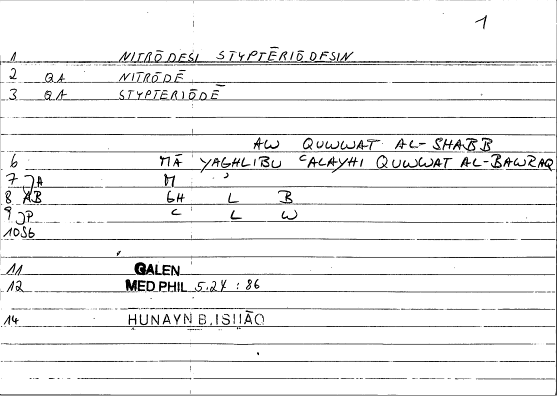 1
1 NITRŌDESI STYPTĒRIŌDESIN
2 QA NITRŌDĒ
3 QA STYPTERIŌDĒ
AW QUWWAT AL-SHABB
6 MĀ YAGHLIBU ʿALAYHI QUWWAT AL-BAWRAQ
7 JA M ʾ
8 AB GH L B
9 JP C L W
10 SG
11 GALEN
12 MED PHIL 5.24 : 86
14 ḤUNAYN B. ISḤĀQ